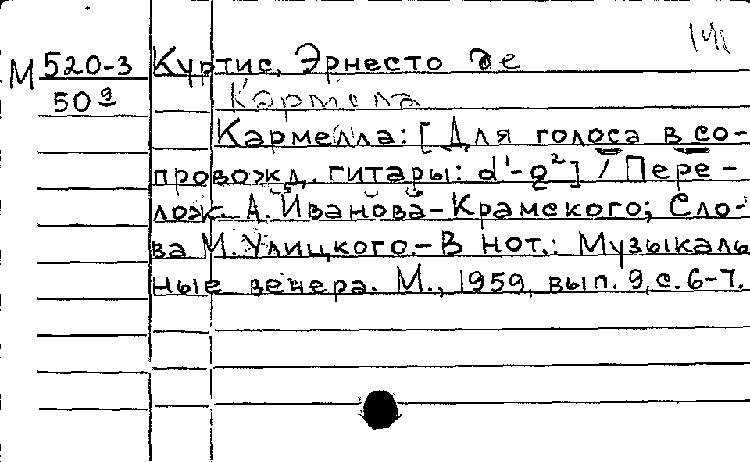 М 520-3 Куртис, Эрнесто де
50 9
Кармела
Кармелла: [Для голоса в со-
провожд. гитары: d¹-g²] / Пере-
лож. А. Иванова-Крамского; Сло-
ва М. Улицкого.- В нот.: Музыкаль
ные вечера. М., 1959, вып. 9, с. 6-7.